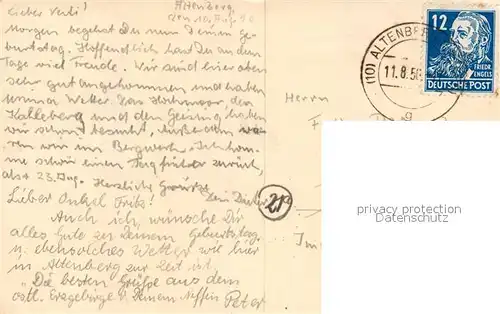 Altenberg,
den 10. Aug. 50
Lieber
Morgen begehst Du nun Deinen Ge-
burtstag. Hoffentlich hast Du an dem
Tage viel Freude. Wir sind hier aber
sehr gut angekommen und haben
Wetter. Den
Kahleberg und den Geising haben
wir schon besucht. Außerdem wa-
ren wir im Bergwerk. Ich kom-
me schon einen Tag früher zurück,
also 23. Aug. Herzliche Grüße
Dein Dieter
Lieber Onkel Fritz!
Auch ich wünsche Dir
alles Gute zu Deinem Geburtstag
u. ebensolches Wetter wie hier
in Altenberg zur Zeit ist.
Die besten Grüße aus dem
östl. Erzgebirge v. Deinem Neffen
Peter
(10) ALTENBE
11.8.50
g
12
FRIEDR.
ENGELS
DEUTSCHE POST
Herrn
21a
privacy protection
Datenschutz